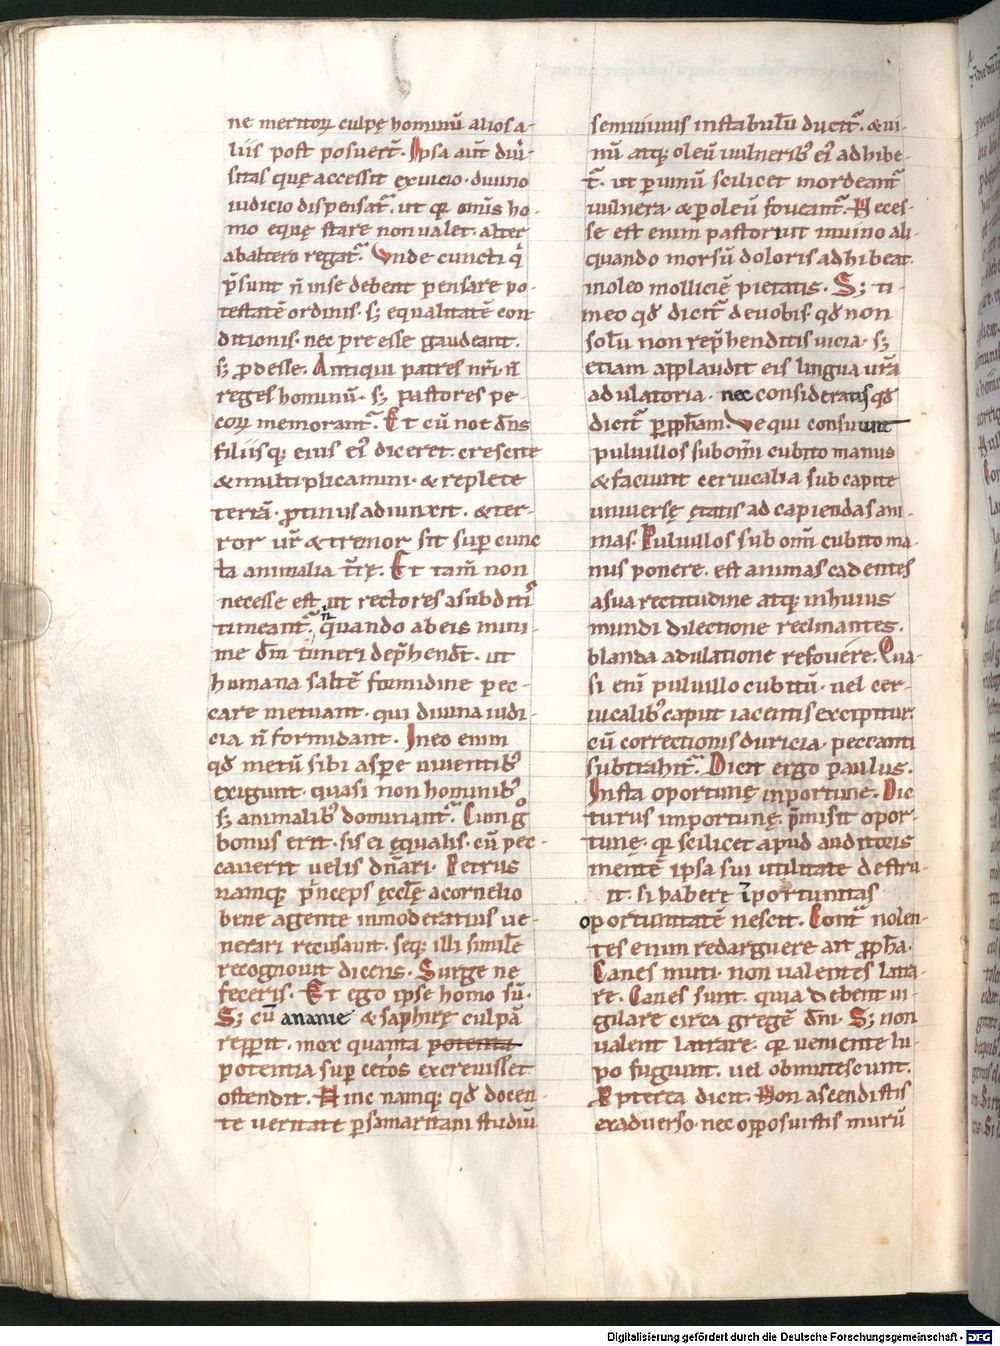 ne meritoꝝ culpę hominū alios a-
liis post posuer̄t. Ipsa aut̄ diu̾-
sitas quę accessit ex uicio. diuino
iudicio dispensat᷑. ut qꝛ om̄is ho-
mo eque stare non ualet. alter
ab altero regat᷑. Vnde cuncti q̇
p̄sunt n̄ in se debent pensare po-
testatē ordinis. sꝫ equalitatē con
ditionis. nec pre esse gaudeant.
sꝫ ꝓdesse. Antiqui patres nr̄i. n̄
reges hominū. sꝫ pastores pe-
coꝝ memorant᷑. Et cū noe dn̄s
filiisqꝫ eius ei᷒ diceret. crescite
& multiplicamini. & replete
terrā. ꝓtinus adiunxit. & ter-
ror ur̄ & tremor sit sup̱ cunc
ta animalia t̄rę. Et tam̄ non
necesse est ut rectores a subditis
timeant᷑. quando ab eis mini-
me dm̄ timeri dep̄hendt̄. ut
humana saltē formidine pec-
care metuant. qui diuina iudi-
cia n̄ formidant. In eo enim
qd̄ metū sibi a spe uiuentibꝰ
exigunt. quasi non hominibꝰ
sꝫ animalibꝰ dominant᷑. Cum gͦ
bonus erit. sis ei ęqualis. cū pec-
cauerit uelis dn̄ari. Petrus
namqꝫ p̓nceps ęcclę̄ a cornelio
bene agente inmoderatius ue-
nerari recusauit. seqꝫ illi similē
recognouit dicens. Surge ne
feceris. Et ego ipse homo sū.
Sꝫ cū ananie & saphirę culpā
repp̱it. mox quanta potenta
potentia sup̱ ceteros excreuisset
ostendit. Hinc namqꝫ qd̄ docen-
te ueritate p̱ samaritani studiū
semiuiuus in stabulū ducit᷑. & ui-
nū atqꝫ oleū uulneribꝰ ei᷒ adhibe-
t᷑. ut p̱ uinū scilicet mordeant᷑
uulnera. & p̱ oleū foueant᷑. Neces-
se est enim pastor ut in uino ali-
quando morsū doloris adhibeat.
in oleo molliciē pietatis. Sꝫ ti-
meo qd̄ dicit᷑ de uobis. qd̄ non
solū non rep̄henditis uicia. sꝫ
etiam applaudit eis lingua ur̄a
adulatoria. nec consideratis qd̄
dicit᷑ p̱ ꝓpham. Ve qui consuunt
puluillos sub om̄i cubito manus
& faciunt ceruicalia sub capite
uniuersę ętatis ad capiendas ani-
mas. Puluillos sub om̄i cubito ma-
nus ponere. est animas cadentes
a sua rectitudine atqꝫ in huius
mundi dilectione reclinantes.
blanda adulatione refouere. Qua-
si eni̅ puluillo cubitū. uel cer-
uicalibꝰ caput iacentis excipitur.
cū correctionis duricia. peccanti
subtrahit᷑. Dicit ergo paulus.
Insta oportunę inportune. Dic
turus importunę. p̄misit opor-
tunę. qꝛ scilicet apud auditoris
mentē ipsa sui utilitate destru-
it. si habere īportunitas
oportunitatē nescit. Contͣ nolen-
tes enim redarguere ait ꝓpha.
Canes muti. non ualentes latra-
re. Canes sunt. quia debent ui-
gilare circa gregē dn̄i. Sꝫ non
ualent latrare. qꝛ ueniente lu-
po fugiunt. uel obmutescunt.
Pp̱terea dicit. Non ascendistis
ex aduerso. nec opposuistis murū
Digitalisierung gefördert durch die Deutsche Forschungsgemeinschaft - DFG